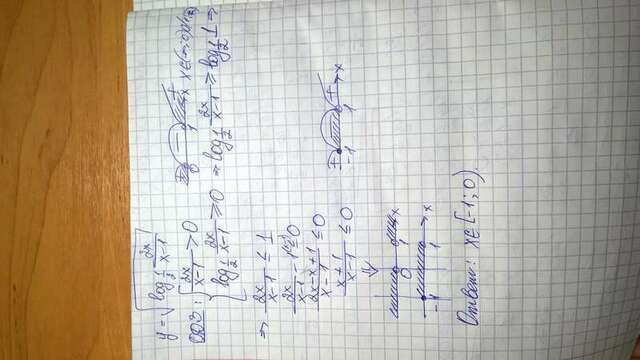 y = √(log_{1/2} 2x/(x-1))
ОДЗ: { 2x/(x-1) > 0   + 0 − 1 + x   x∈(-∞;0)∪(1;
{ log_{1/2} 2x/(x-1) ≥ 0 ⇒ log_{1/2} 2x/(x-1) ≥ log_{1/2} 1 ⇒
⇒ 2x/(x-1) ≤ 1
2x/(x-1) - 1^{(x-1)} ≤ 0
(2x-x+1)/(x-1) ≤ 0
(x+1)/(x-1) ≤ 0   + -1 − 1 + x
⇓
0 1 x
-1 1 x
Ответ: x∈[-1;0).